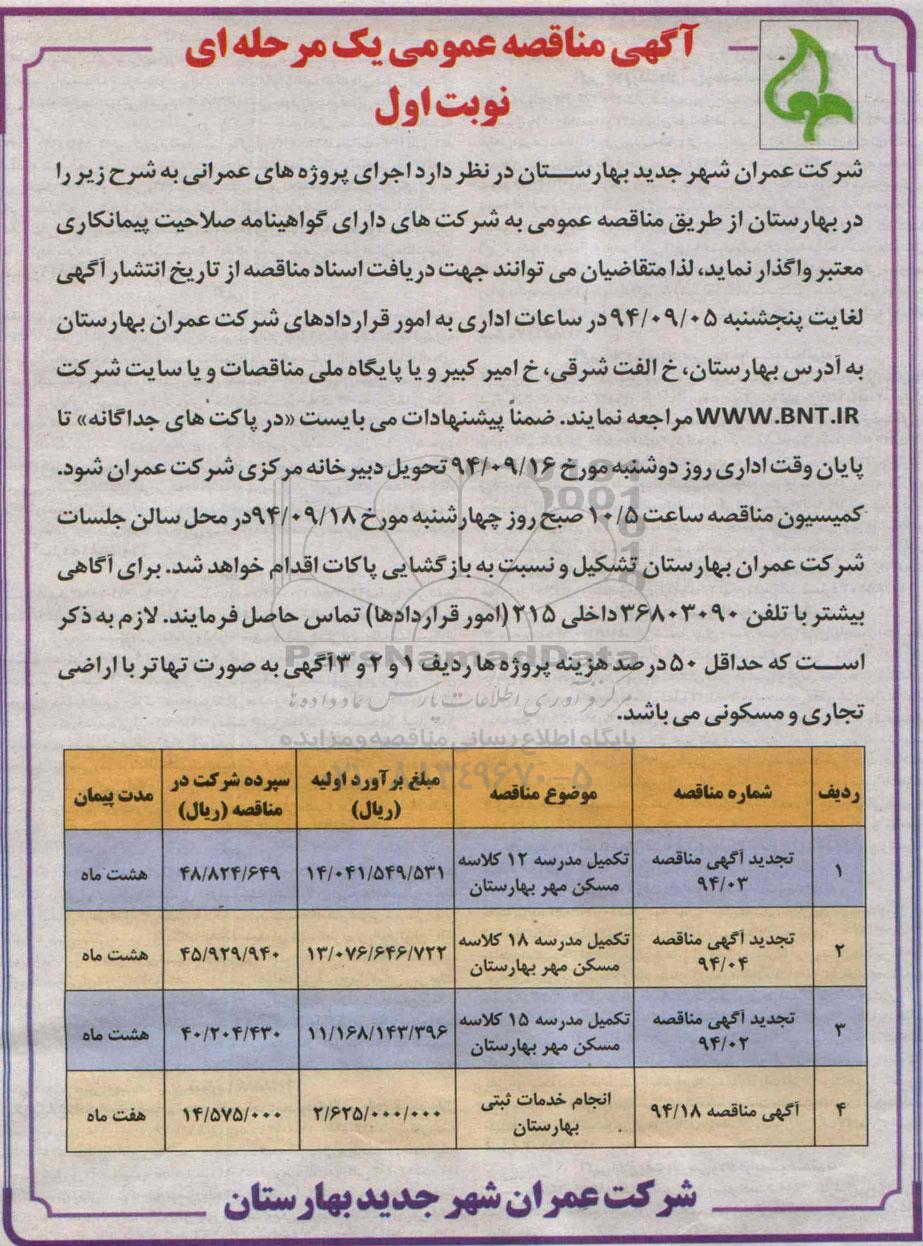 آگهی مناقصه عمومی یک مرحله ای
نوبت اول
شرکت عمران شهر جدید بهارستان در نظر دارد اجرای پروژه های عمرانی به شرح زیر را
در بهارستان از طریق مناقصه عمومی به شرکت های دارای گواهینامه صلاحیت پیمانکاری
معتبر واگذار نماید، لذا متقاضیان می توانند جهت دریافت اسناد مناقصه از تاریخ انتشار آگهی
لغایت پنجشنبه ۹۴/۰۹/۰۵ در ساعات اداری به امور قراردادهای شرکت عمران بهارستان
به آدرس بهارستان، خ الفت شرقی، خ امیر کبیر و یا پایگاه ملی مناقصات و یا سایت شرکت
WWW.BNT.IR مراجعه نمایند. ضمناً پیشنهادات می بایست «در پاکت های جداگانه» تا
پایان وقت اداری روز دوشنبه مورخ ۹۴/۰۹/۱۶ تحویل دبیرخانه مرکزی شرکت عمران شود.
کمیسیون مناقصه ساعت ۱۰/۵ صبح روز چهارشنبه مورخ ۹۴/۰۹/۱۸ در محل سالن جلسات
شرکت عمران بهارستان تشکیل و نسبت به بازگشایی پاکات اقدام خواهد شد. برای آگاهی
بیشتر با تلفن ۳۶۸۰۳۰۹۰ داخلی ۲۱۵ (امور قراردادها) تماس حاصل فرمایند. لازم به ذکر
است که حداقل ۵۰ درصد هزینه پروژه ها ردیف ۱ و ۲ و ۳ آگهی به صورت تهاتر با اراضی
تجاری و مسکونی می باشد.
ParsNamadData
مرکز فرآوری اطلاعات پارس نماد داده ها
پایگاه اطلاع رسانی مناقصه و مزایده
ردیف شماره مناقصه موضوع مناقصه مبلغ برآورد اولیه (ریال) سپرده شرکت در مناقصه (ریال) مدت پیمان
۱ تجدید آگهی مناقصه ۹۴/۰۳ تکمیل مدرسه ۱۲ کلاسه مسکن مهر بهارستان ۱۴/۰۴۱/۵۴۹/۵۳۱ ۴۸/۸۲۴/۶۴۹ هشت ماه
۲ تجدید آگهی مناقصه ۹۴/۰۴ تکمیل مدرسه ۱۸ کلاسه مسکن مهر بهارستان ۱۳/۰۷۶/۶۴۶/۷۲۲ ۴۵/۹۲۹/۹۴۰ هشت ماه
۳ تجدید آگهی مناقصه ۹۴/۰۲ تکمیل مدرسه ۱۵ کلاسه مسکن مهر بهارستان ۱۱/۱۶۸/۱۴۳/۳۹۶ ۴۰/۲۰۴/۴۳۰ هشت ماه
۴ آگهی مناقصه ۹۴/۱۸ انجام خدمات ثبتی بهارستان ۲/۶۲۵/۰۰۰/۰۰۰ ۱۴/۵۷۵/۰۰۰ هفت ماه
شرکت عمران شهر جدید بهارستان